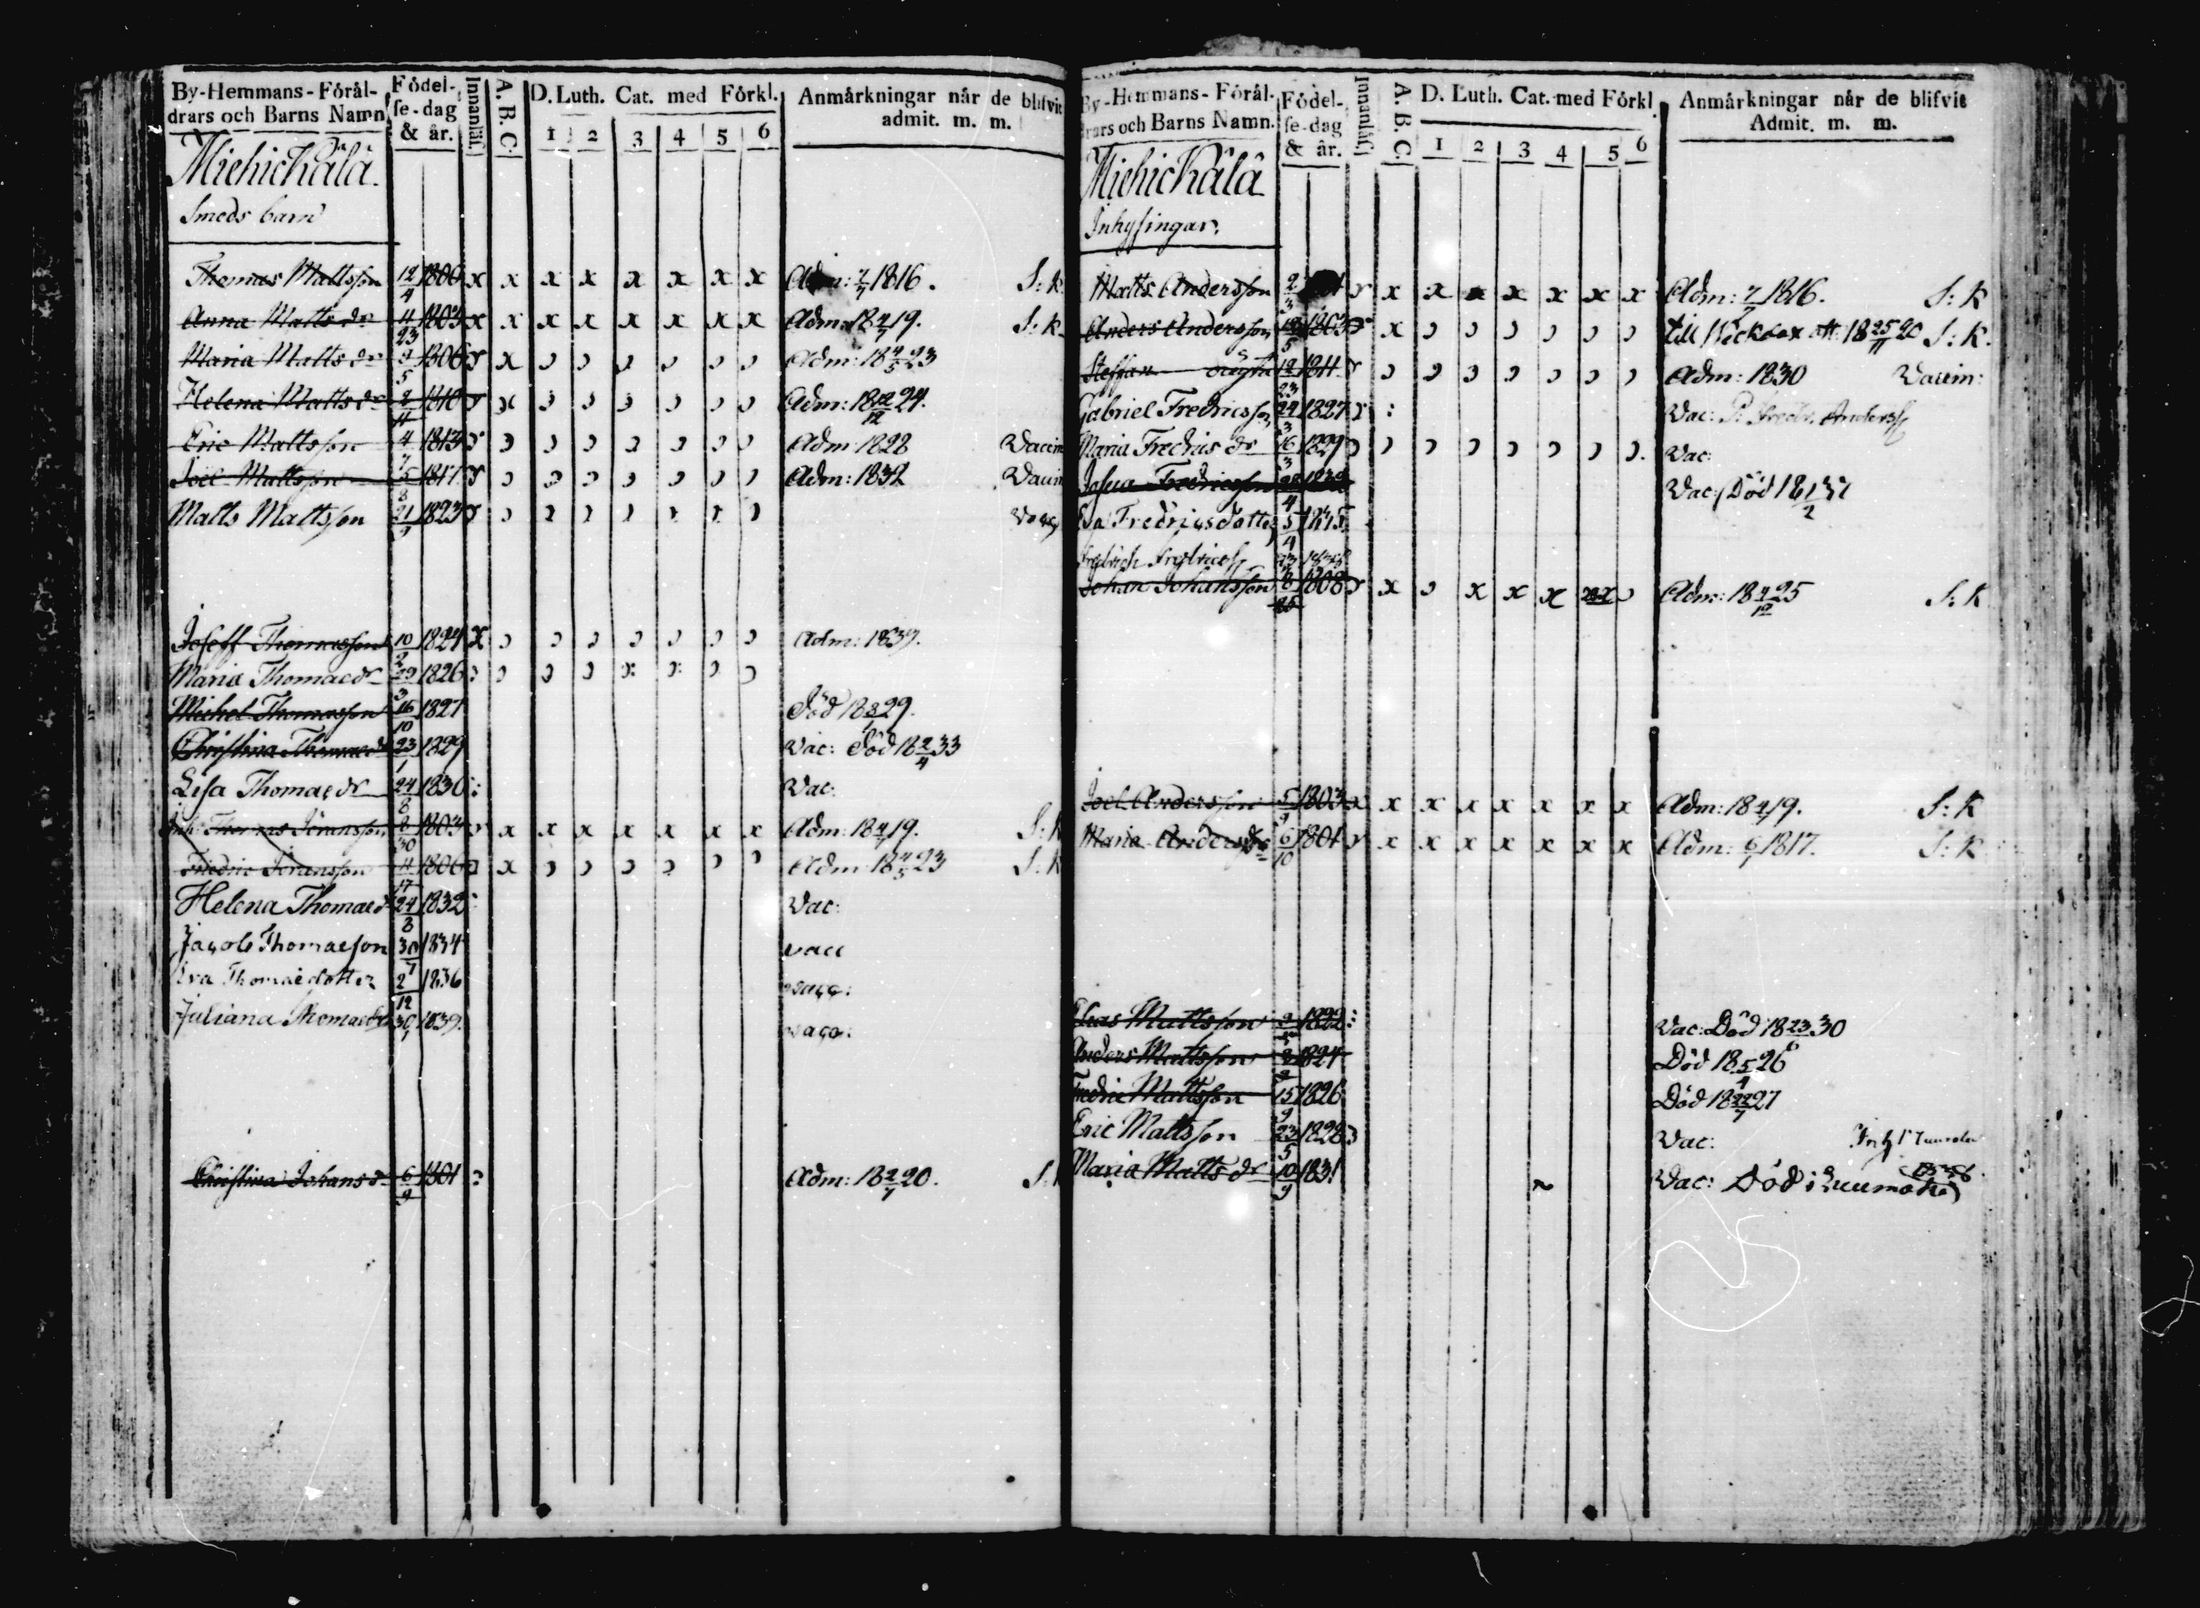 By-Hemmans-Föräl-
drars och Barns Namn
Födel-
se-dag
& år.
Innanläs.
A. B. C.
D. Luth. Cat. med Förkl.
1 2 3 4 5 6
Anmärkningar når de blifvit
admit. m. m.
Miehickälä.
Smeds barn
Thomas Mattsson 12/4 1800 x x x x x x x x Adm: 7/7 1816. S: K
Anna Matts dr 4/23 1803 x x x x x x x x Adm: 18 4/7 19. S: K.
Maria Matts dr 1806 x Adm: 18 4/5 23
Helena Matts dr 1810 x Adm: 18 12/12 24.
Eric Mattsson 4 1813 Adm 1828 Vaccin
Joel Mattsson 5/8 1817 Adm: 1832 Vaccin
Matts Mattsson 21/9 1823 Vacc
Joseff Thomasson 10/2 1824 x Adm: 1839.
Maria Thomaedr 29/3 1826
Michel Thomasson 16/10 1827 Död 18 29.
Christina Thomaedr 23/1 1829 Vac: Död 18 2/4 33
Lisa Thomaedr 24/8 1830 Vac:
Thomas Göransson 8/30 1803 x x x x x x x Adm: 18 4/7 19. S: K
Fredric Göransson 4/17 1806 x Adm 18 4/5 23 S: K
Helena Thomaedr 24/8 1832 Vac:
Jacob Thomaeson 30/7 1834 vacc
Eva Thomaedotter 2/12 1836 vacc:
Juliana Thomaedr 30/7 1839. vacc:
Christina Johans dr 6/9 1801 Adm: 18 2/7 20. S:
By-Hemmans-Föräl-
drars och Barns Namn.
Födel-
se-dag
& år.
Innanläs.
A. B. C.
D. Luth. Cat. med Förkl.
1 2 3 4 5 6
Anmärkningar når de blifvit
Admit. m. m.
Miehickälä
Inhysingar.
Matts Andersson 2/3 x x x x x x x Adm: 7/7 1816. S: K
Anders Andersson 18/5 1803 x till Weckelax att: 18 25/11 20 S: K.
Steffan 12/23 1811 Adm: 1830 Vaccin:
Gabriel Fredricsson 24/3 1827 Vac: Fredr. Anderss
Maria Fredrics dr 16/3 1829 Vac:
Josua Fredricsson 28/4 1832 Vac: Död 18 1/2 37
Eva Fredricsdotter 5/4 1835
Fredrich Fredricss 23 1838
Johan Johansson 8/25 1808 x x x x Adm: 18 4/12 25 S: K
Joel Andersson 5/9 1803 x x x x x x x x Adm: 18 4/7 19. S: K
Maria Anders dr 6/10 1801 x x x x x x x Adm: 6/7 1817. S: K
Elias Mattsson 1822 Vac: Död 18 23/6 30
Anders Mattsson 1824 Död 18 5/4 26
Fredric Mattsson 15/9 1826 Död 18 22/7 27
Eric Mattsson 23/5 1828 Vac:
Maria Matts dr 10/9 1831 Vac: Död i